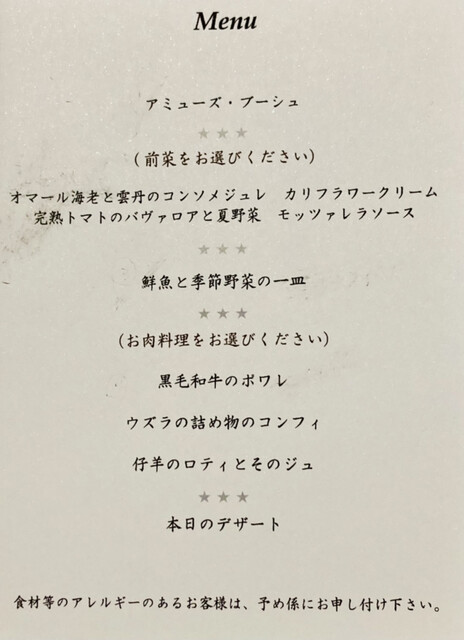 Menu
アミューズ・ブーシュ
★★★
(前菜をお選びください)
オマール海老と雲丹のコンソメジュレ　カリフラワークリーム
完熟トマトのバヴァロアと夏野菜　モッツァレラソース
★★★
鮮魚と季節野菜の一皿
★★★
(お肉料理をお選びください)
黒毛和牛のポワレ
ウズラの詰め物のコンフィ
仔羊のロティとそのジュ
★★★
本日のデザート
食材等のアレルギーのあるお客様は、予め係にお申し付け下さい。